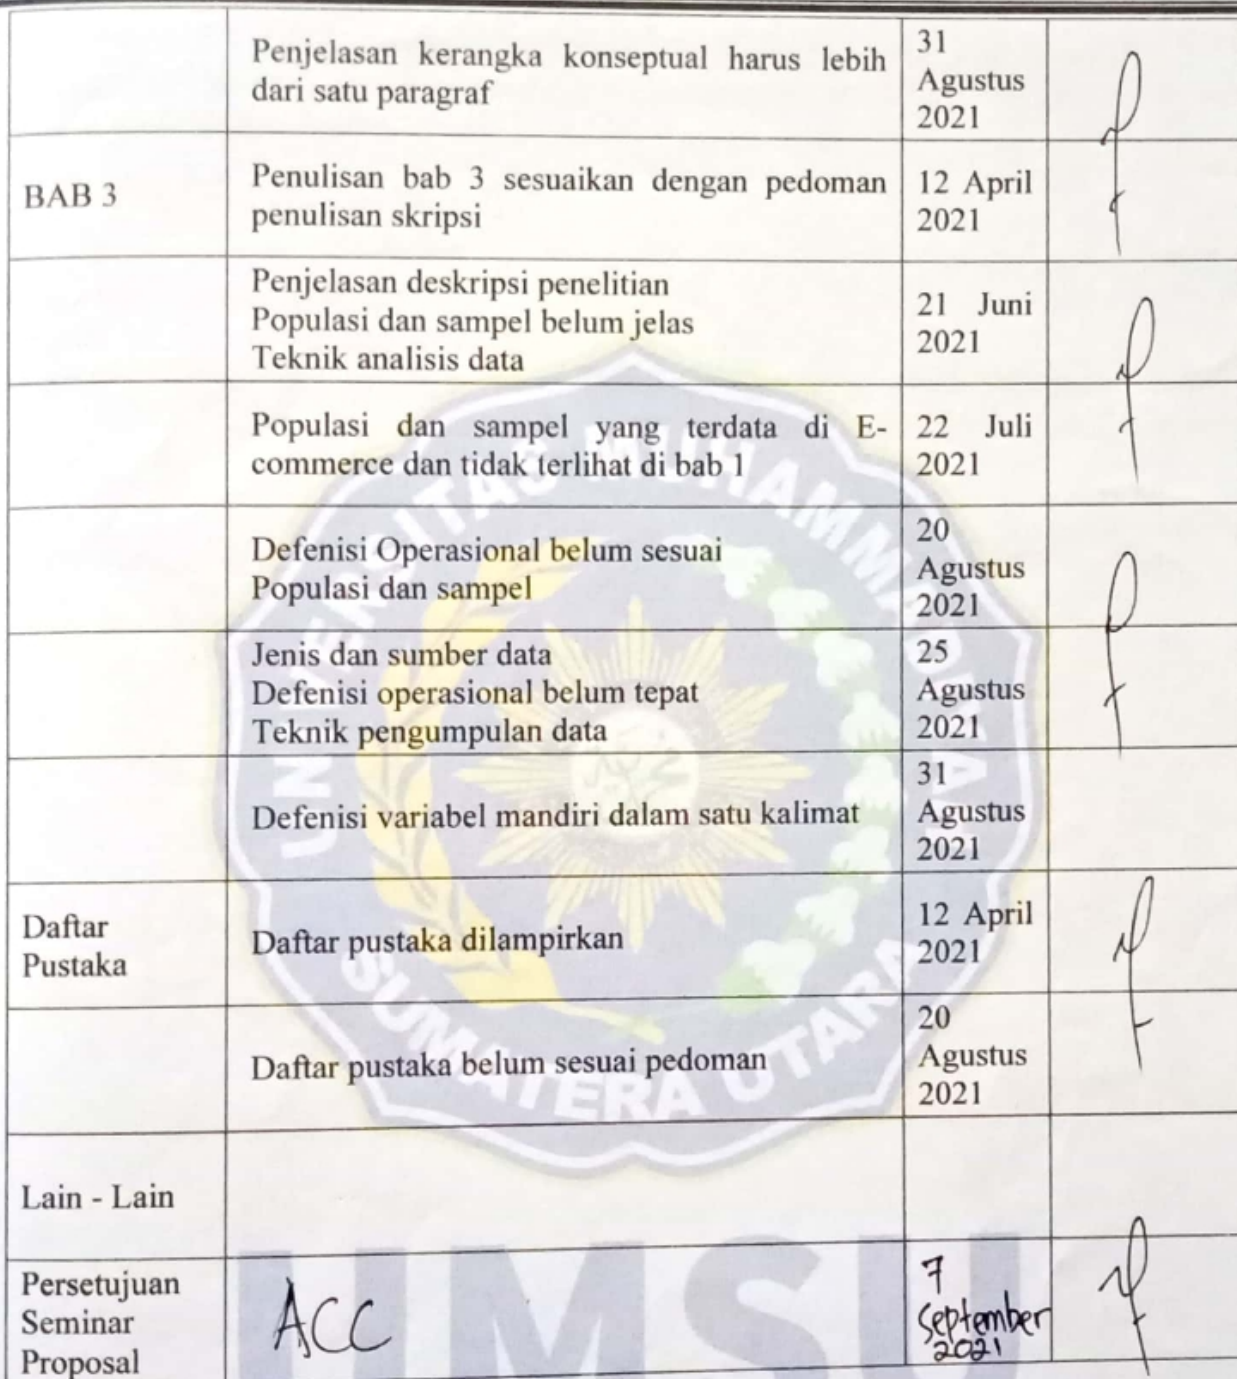 Penjelasan kerangka konseptual harus lebih
dari satu paragraf
31
Agustus
2021
BAB 3
Penulisan bab 3 sesuaikan dengan pedoman
penulisan skripsi
12 April
2021
Penjelasan deskripsi penelitian
Populasi dan sampel belum jelas
Teknik analisis data
21 Juni
2021
Populasi dan sampel yang terdata di E-
commerce dan tidak terlihat di bab 1
22 Juli
2021
Defenisi Operasional belum sesuai
Populasi dan sampel
20
Agustus
2021
Jenis dan sumber data
Defenisi operasional belum tepat
Teknik pengumpulan data
25
Agustus
2021
Defenisi variabel mandiri dalam satu kalimat
31
Agustus
2021
Daftar
Pustaka
Daftar pustaka dilampirkan
12 April
2021
Daftar pustaka belum sesuai pedoman
20
Agustus
2021
Lain - Lain
Persetujuan
Seminar
Proposal
ACC
7
September
2021
UNIVERSITAS MUHAMMADIYAH
SUMATERA UTARA
UMSU